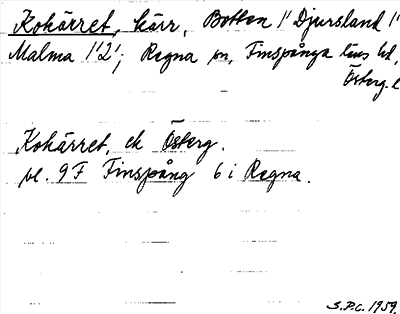 Kokärret, kärr, Botten 1' Djursland 1'
Malma 1'2'; Regna sn, Finspånga läns hd,
Österg. l
Kokärret, ek Österg.
bl. 9 F Finspång 6 i Regna.
S.P.C. 1959.